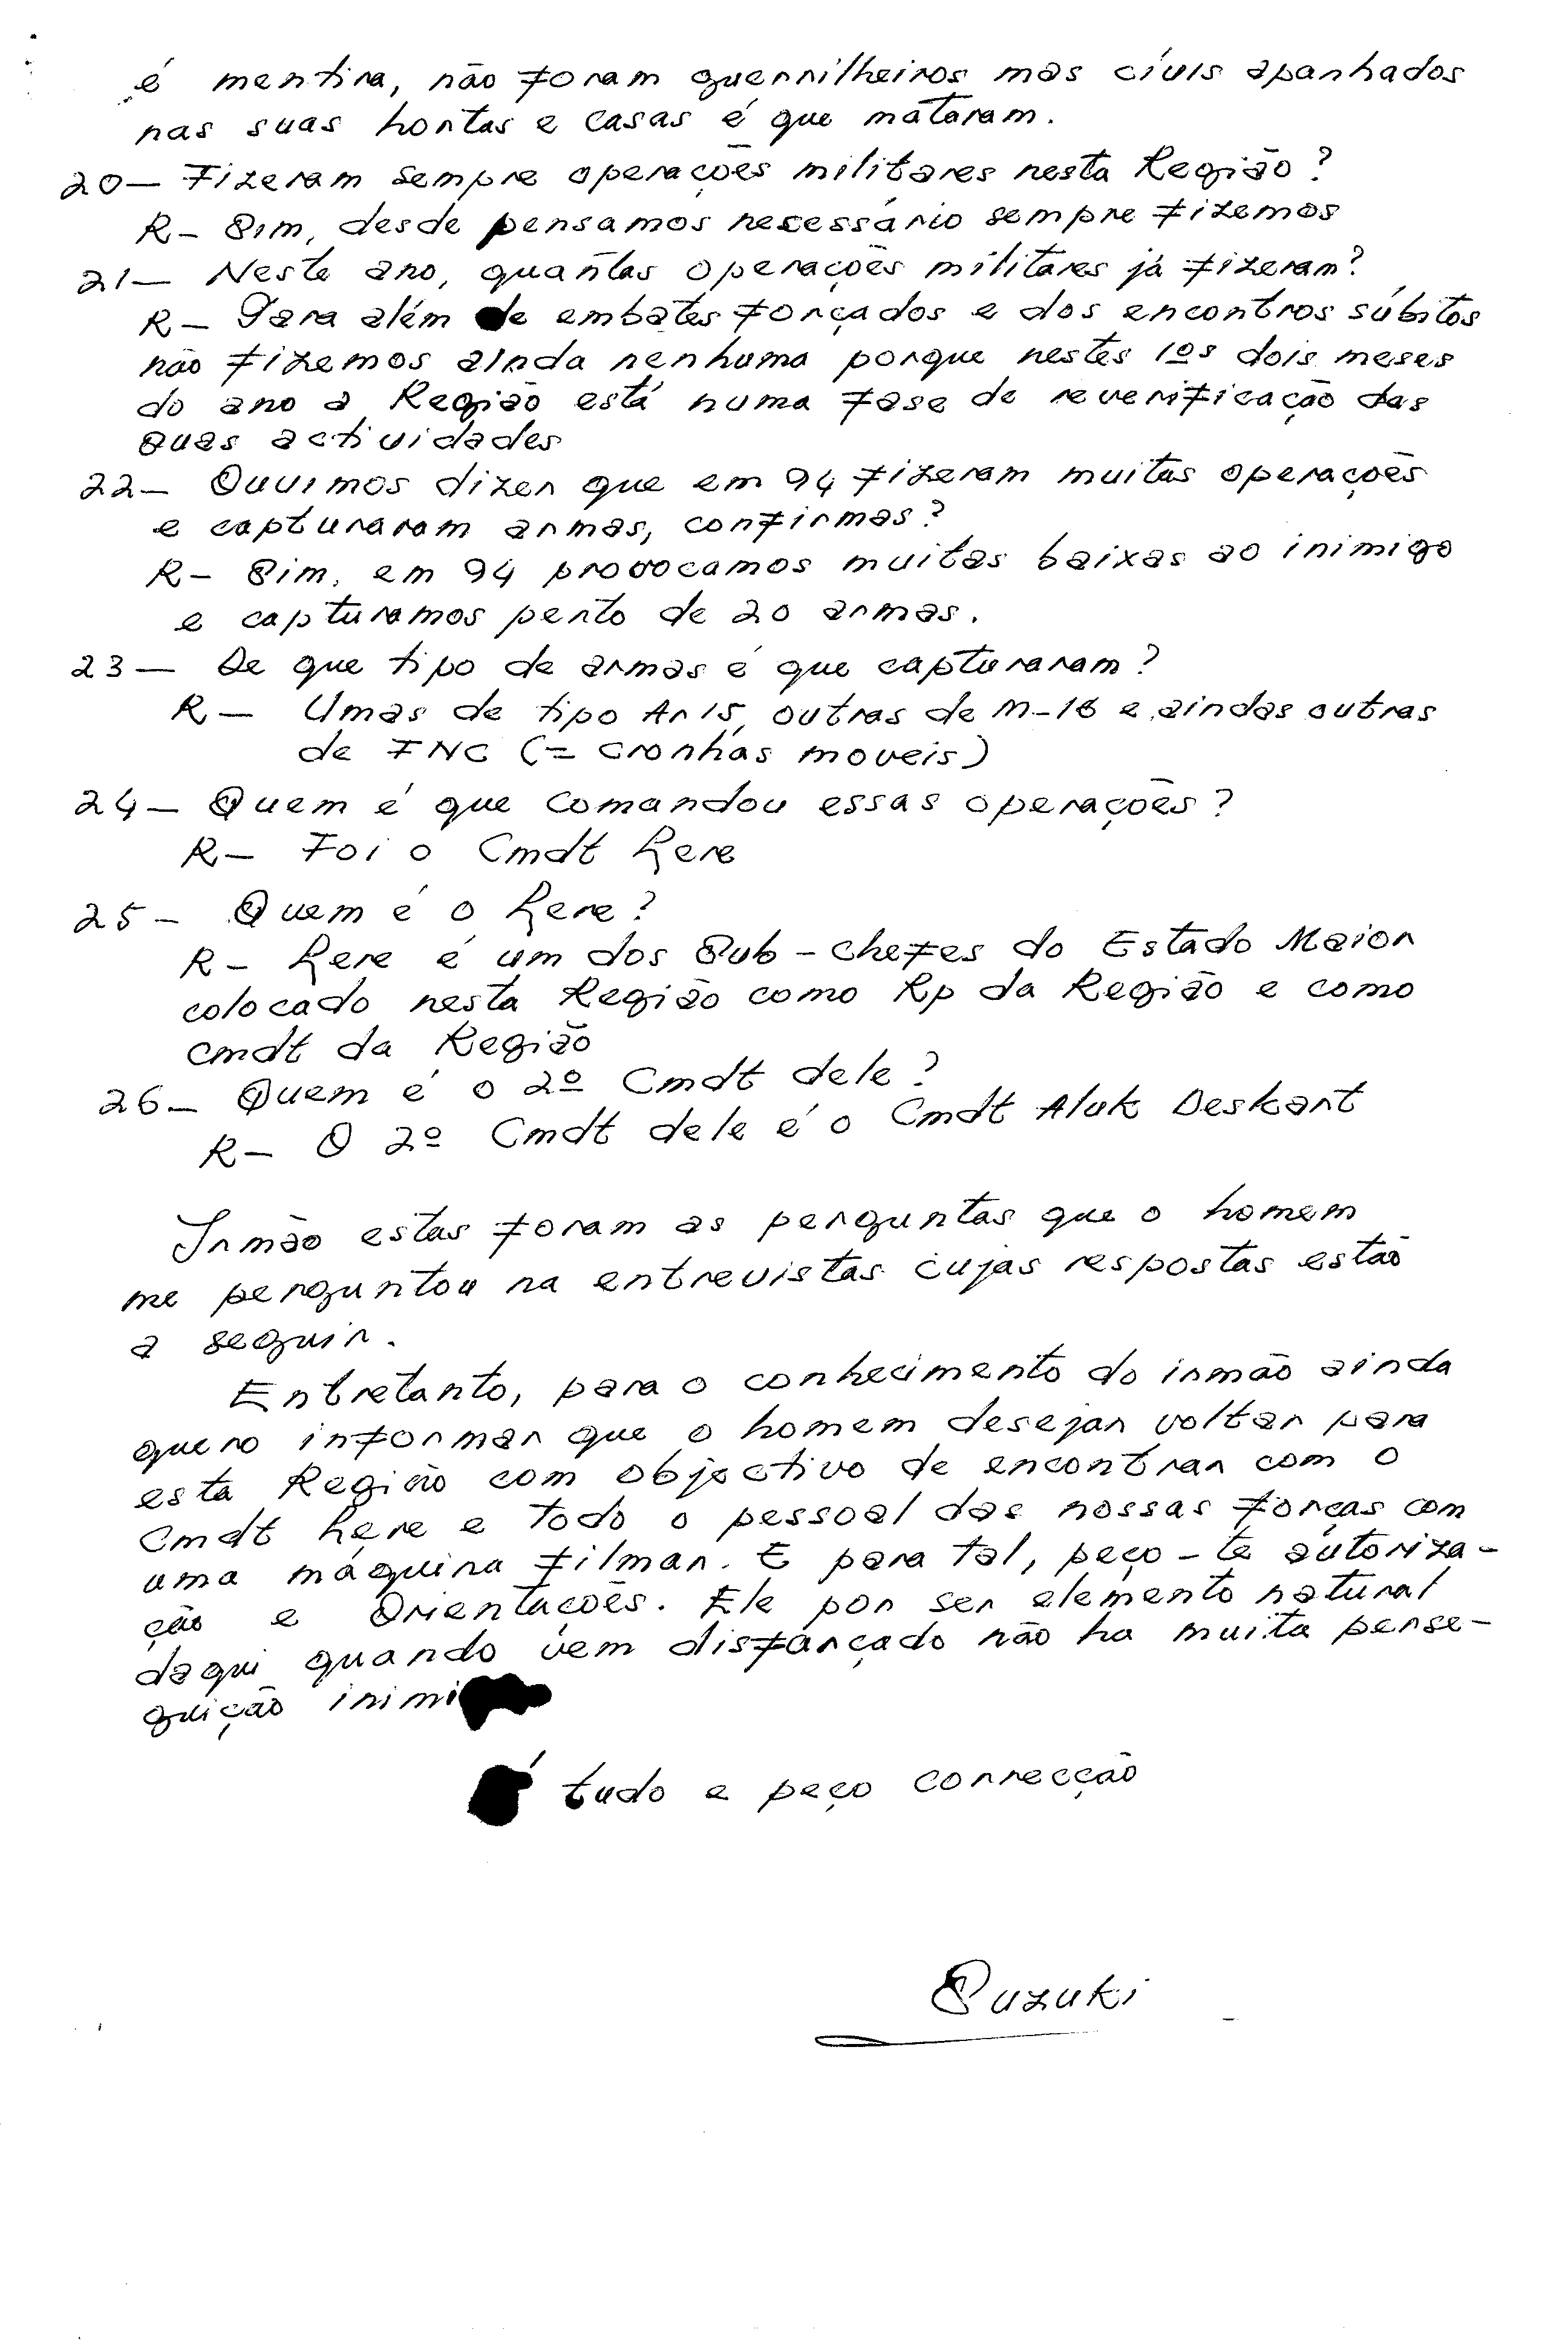 é mentira, não foram guerrilheiros mas cívis apanhados
nas suas hortas e casas é que mataram.
20 — Fizeram sempre operações militares nesta Região?
R — Sim, desde pensamos necessário sempre fizemos
21 — Neste ano, quantas operações militares já fizeram?
R — Para além de embates forçados e dos encontros súbitos
não fizemos ainda nenhuma porque nestes 1ºs dois meses
do ano a Região está numa fase de reverificação das
suas actividades
22 — Ouvimos dizer que em 94 fizeram muitas operações
e capturaram armas, confirmas?
R — Sim, em 94 provocamos muitas baixas ao inimigo
e capturamos perto de 20 armas.
23 — De que tipo de armas é que capturaram?
R — Umas de tipo Ar 15, outras de M-16 e aindas outras
de FNC (= cronhas moveis)
24 — Quem é que comandou essas operações?
R — Foi o Cmdt Lere
25 — Quem é o Lere?
R — Lere é um dos Sub-chefes do Estado Maior
colocado nesta Região como Rp da Região e como
cmdt da Região
26 — Quem é o 2º Cmdt dele?
R — O 2º Cmdt dele é o Cmdt Aluk Deskart
Irmão estas foram as perguntas que o homem
me perguntou na entrevistas cujas respostas estão
a seguir.
Entretanto, para o conhecimento do irmão ainda
quero informar que o homem desejar voltar para
esta Região com objectivo de encontrar com o
Cmdt Lere e todo o pessoal das nossas forças com
uma máquina filmar. E para tal, peço-te autoriza-
ção e Orientacões. Ele por ser elemento natural
daqui quando vem disfarçado não ha muita perse-
guição inimi
É tudo e peço correcção
Suzuki